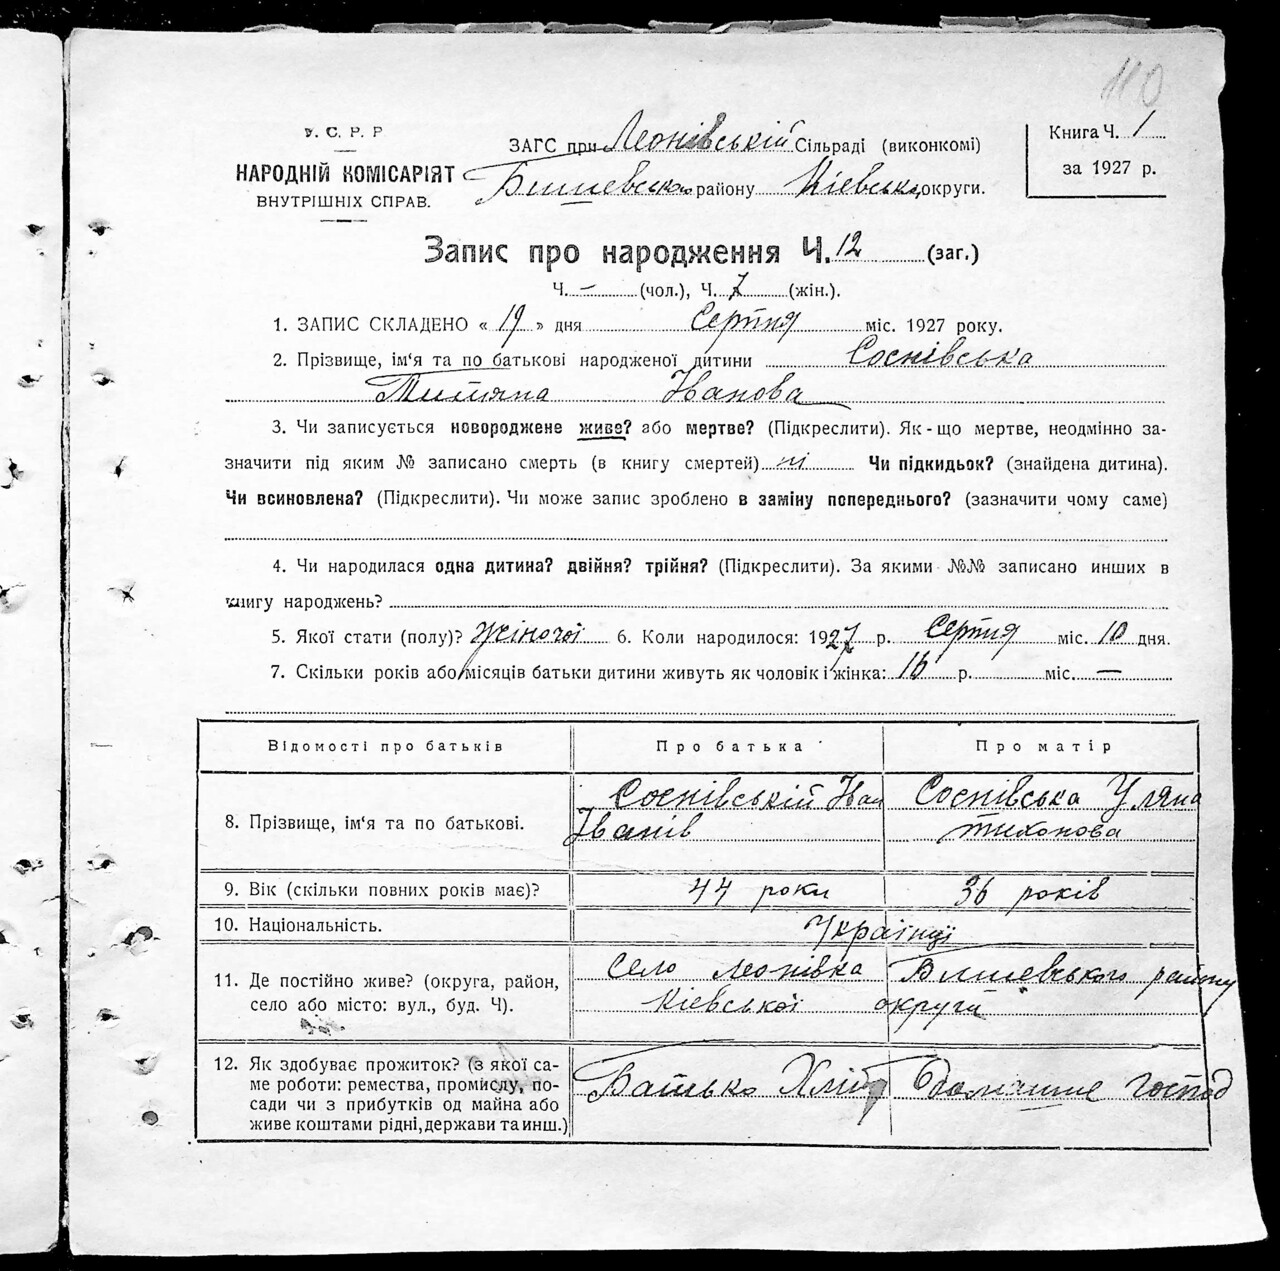 110
У. С. Р. Р
НАРОДНІЙ КОМІСАРІЯТ
ВНУТРІШНІХ СПРАВ.
ЗАГС при Леонівській Сільраді (виконкомі)
Бишевсько району Кіевсько округи.
Книга Ч. 1
за 1927 р.
Запис про народження Ч. 12 (заг.)
Ч. – (чол.), Ч. 7 (жін.).
1. ЗАПИС СКЛАДЕНО « 19 » дня Серпня міс. 1927 року.
2. Прізвище, ім‘я та по батькові народженої дитини Соснівська
Титяна Іванова
3. Чи записується новороджене живе? або мертве? (Підкреслити). Як-що мертве, неодмінно за-
значити під яким № записано смерть (в книгу смертей) ні Чи підкидьок? (знайдена дитина).
Чи всиновлена? (Підкреслити). Чи може запис зроблено в заміну попереднього? (зазначити чому саме)
4. Чи народилася одна дитина? двійня? трійня? (Підкреслити). За якими №№ записано инших в
книгу народжень?
5. Якої стати (полу)? жіночої 6. Коли народилося: 1927 р. Серпня міс. 10 дня.
7. Скільки років або місяців батьки дитини живуть як чоловік і жінка: 16 р. міс. —
Відомості про батьків Про батька Про матір
8. Прізвище, ім‘я та по батькові. Соснівській Іван Іванів Соснівська Уляна тихонова
9. Вік (скільки повних років має)? 44 роки 36 років
10. Національність. Українці
11. Де постійно живе? (округа, район,
село або місто: вул., буд. Ч).
село Леонівка Бишевського району
Кіевської округи
12. Як здобуває прожиток? (з якої са-
ме роботи: ремества, промислу, по-
сади чи з прибутків од майна або
живе коштами рідні, держави та инш.)
Батько Хліб Домашне господ